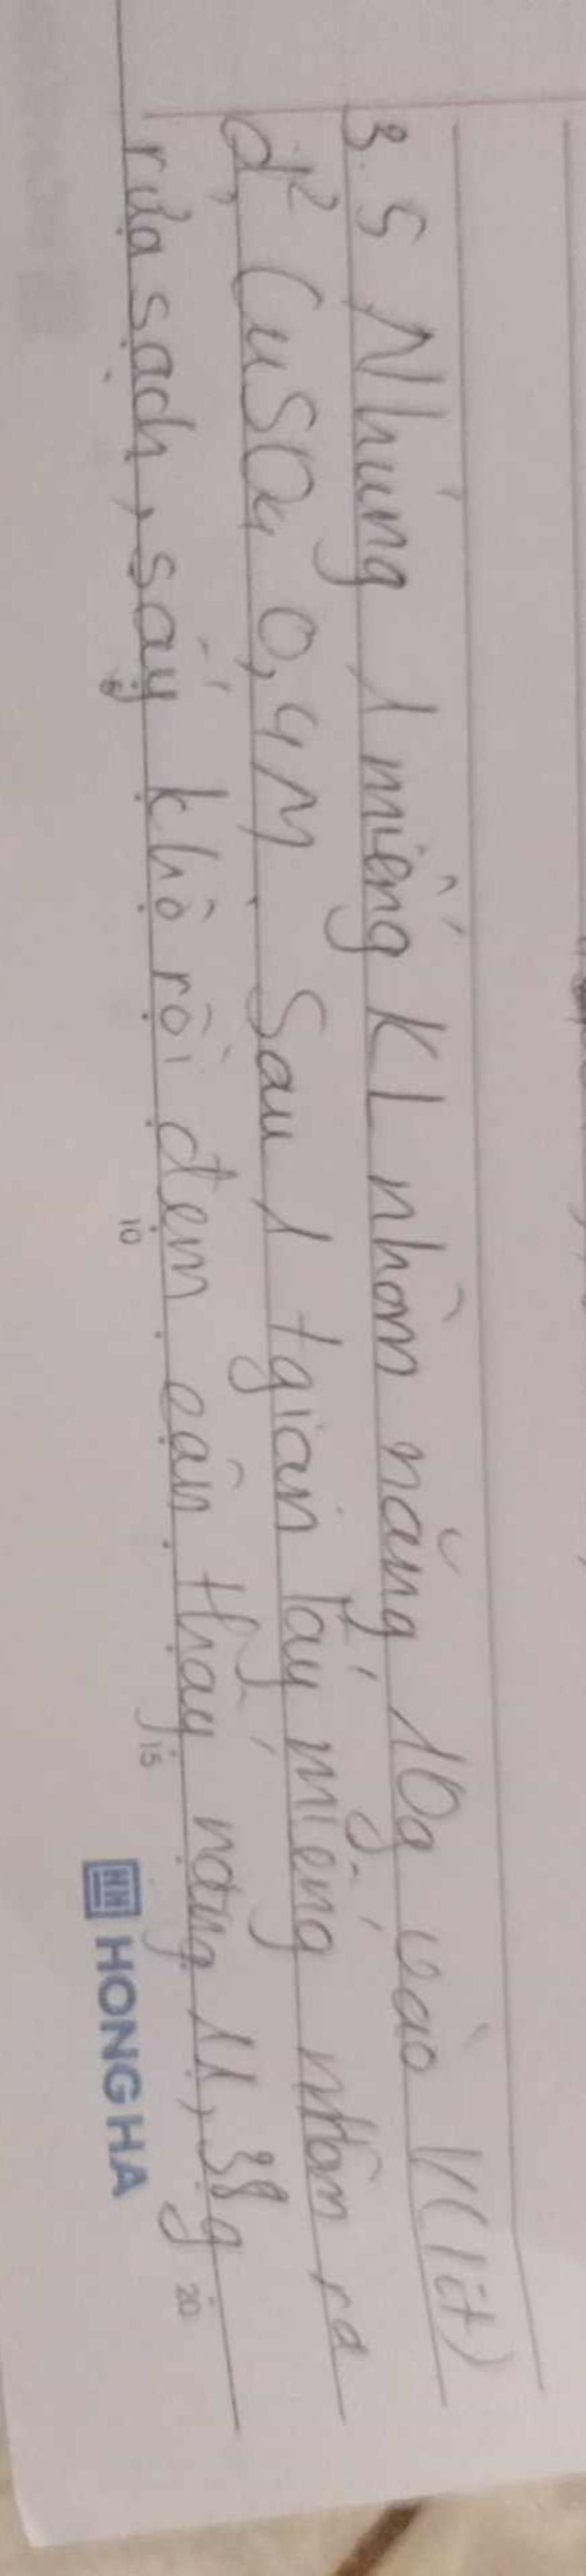 3.5 Nhúng 1 miếng KL nhôm nặng 10g vào V(lít)
d² CuSO4 0,4M. Sau 1 tgian lấy miếng nhôm ra
rửa sạch, sấy khô rồi đem cân thấy nặng 11,38g
5 10 15 20
HH HONG HA